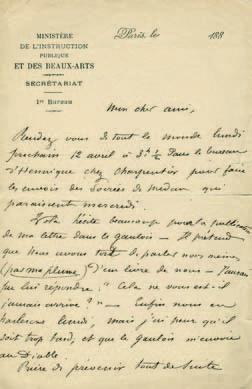 MINISTÈRE
DE L'INSTRUCTION
PUBLIQUE
ET DES BEAUX-ARTS
SECRÉTARIAT
1er BUREAU
Paris, le 188
Mon cher ami,
Rendez vous de tout le monde lundi
prochain 12 avril à 3h ½ dans le bureau
d'Hennique chez Charpentier pour faire
les envois des Soirées de Médan qui
paraissent mercredi.
hésite beaucoup pour la publication
de ma lettre dans le gaulois – Il prétend
que nous avons tort de parler nous mêmes
(par ma plume) d'un livre de nous –
lui répondre: "Cela ne vous est-il
jamais arrivé?" – Enfin nous en
parlerons lundi, mais j'ai peur qu'il
soit trop tard, et que le gaulois m'envoie
au Diable.
Prière de prévenir tout de suite